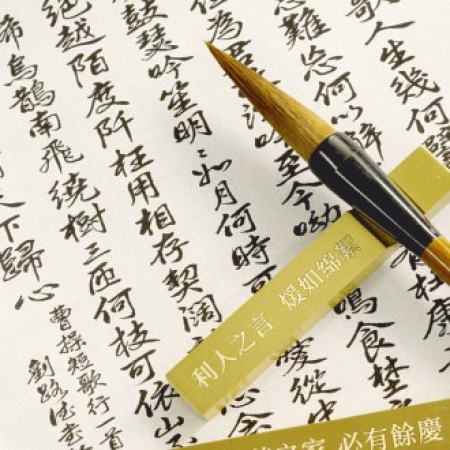 歌人生幾何譬
難忘何以解
杜康
但為君
沉吟至今呦
鳴食埜
鼓瑟吹笙明〻如月何時可
憂從中
絕越陌度阡枉用相存契闊
心念
希烏鵲南飛繞樹三匝何枝可依山
天下歸心
曹操短歌行一首
利人之言 煖如綿絮
必有餘慶